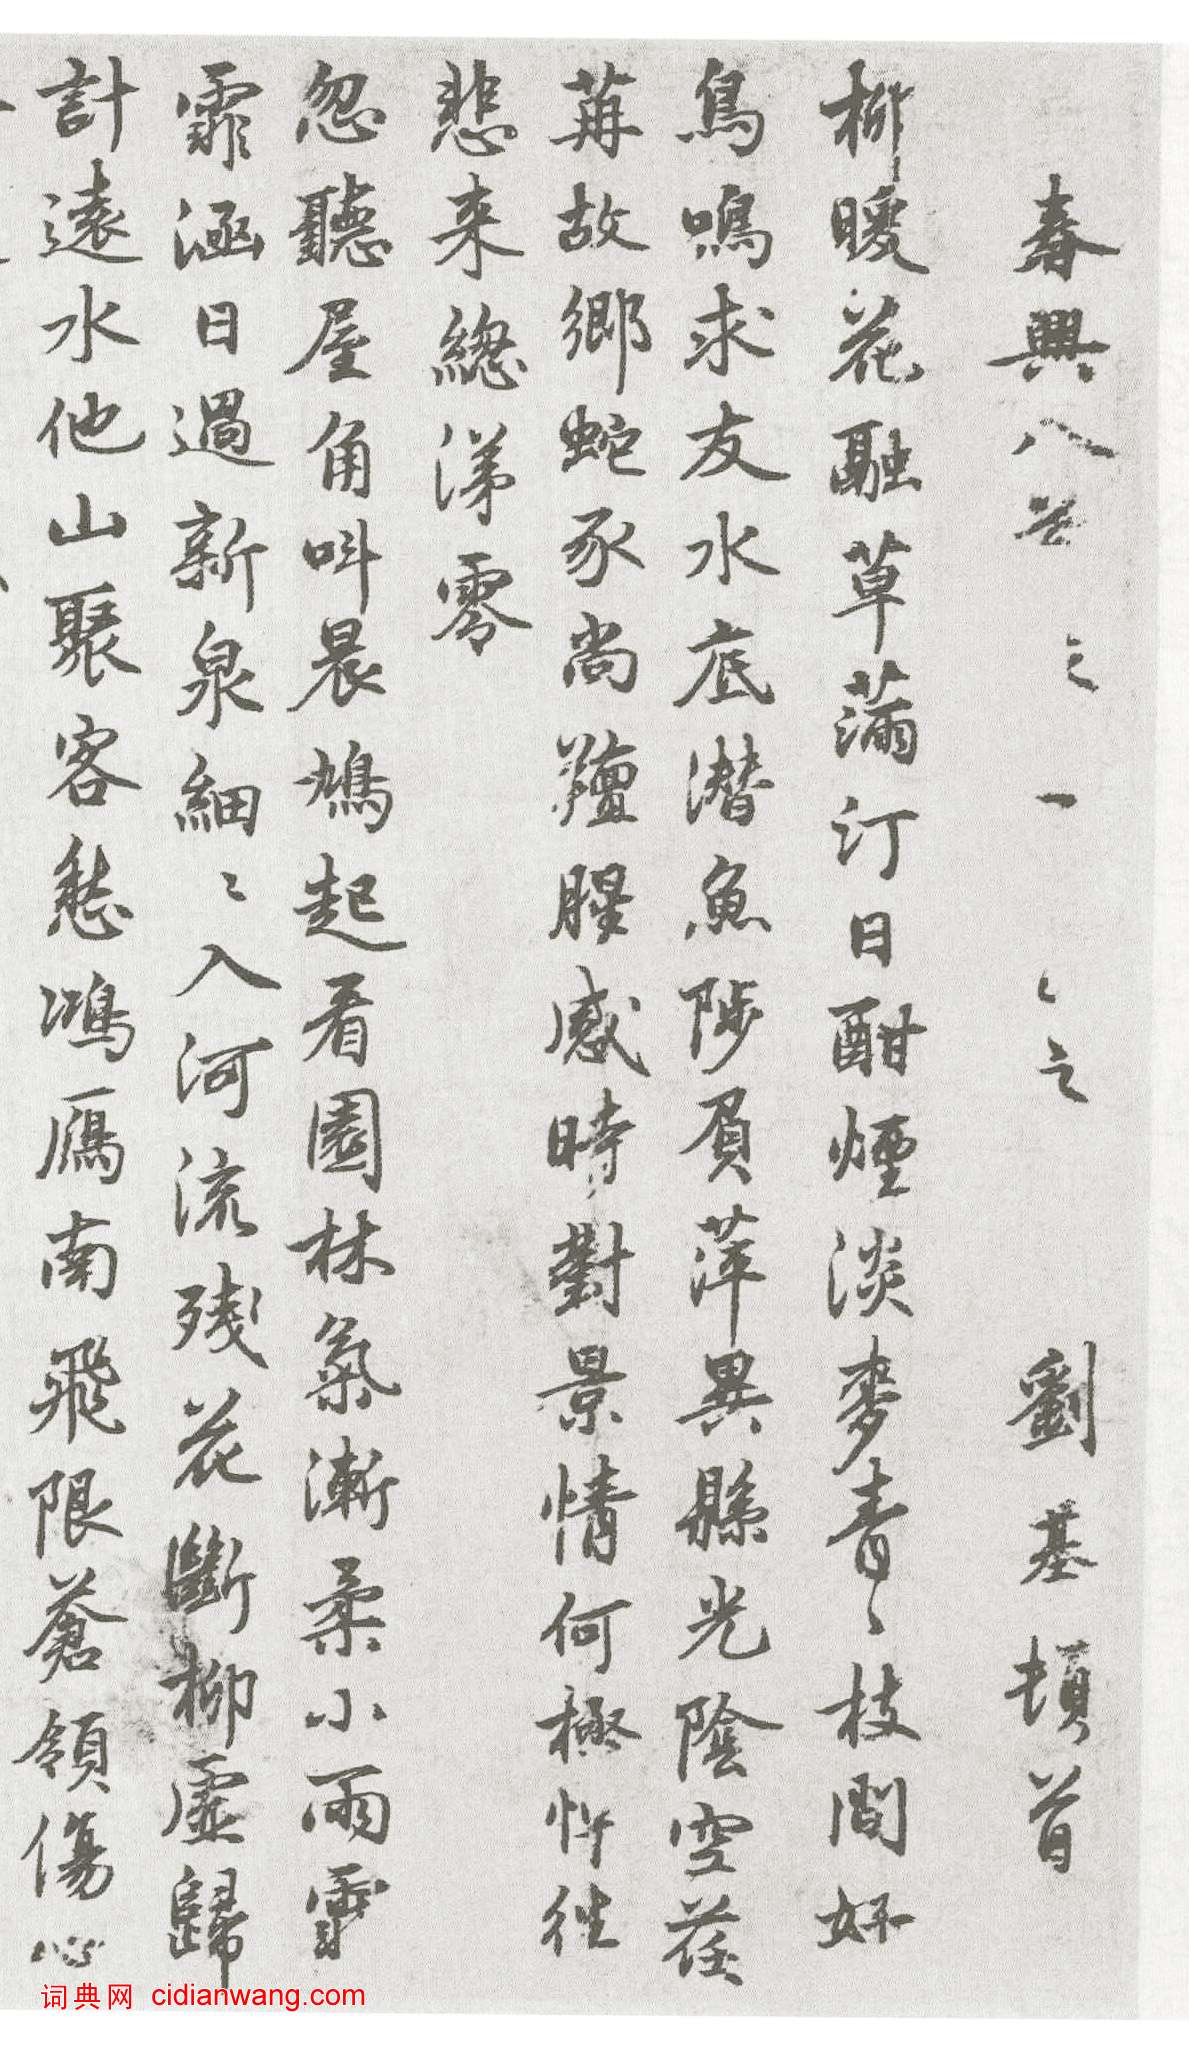 春興八首之一之 劉基頓首
柳暖花融草滿汀日酣煙淡麥青〻枝間好
鳥鳴求友水底潛魚陟負萍異縣光陰空荏
苒故鄉蛇豕尚羶腥感時對景情何極忤往
悲來總涕零
忽聽屋角叫晨鳩起看園林氣漸柔小雨霏
霏涵日過新泉細〻入河流殘花斷柳虛歸
計遠水他山聚客愁鴻鴈南飛限蒼領傷心
词典网 cidianwang.com